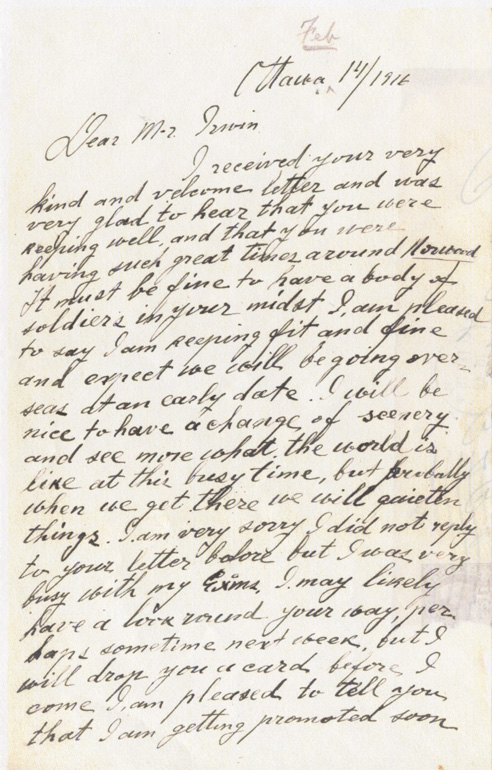 Feb
Ottawa 14/1916
Dear Mr. Irwin
I received your very
kind and velcome letter and was
very glad to hear that you were
keeping well, and that you were
having such great times around Norwood
It must be fine to have a body of
soldiers in your midst I, am pleased
to say I am keeping fit and fine
and expect we will be going over-
seas at an early date. I will be
nice to have a change of scenery
and see more what the world is
like at this busy time, but probally
when we get there we will quieten
things. I am very sorry I did not reply
to your letter before but I was very
busy with my Exams, I may likely
have a look round your way, per
haps sometime next week, but I
will drop you a card before I
come I, am pleased to tell you
that I am getting promoted soon